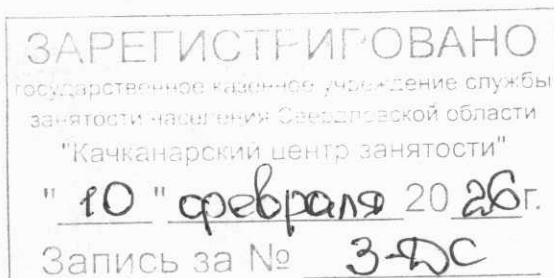 ЗАРЕГИСТРИРОВАНО
государственное казенное учреждение службы
занятости населения Свердловской области
"Качканарский центр занятости"
" 10 " февраля 20 26г.
Запись за № 3-ДС